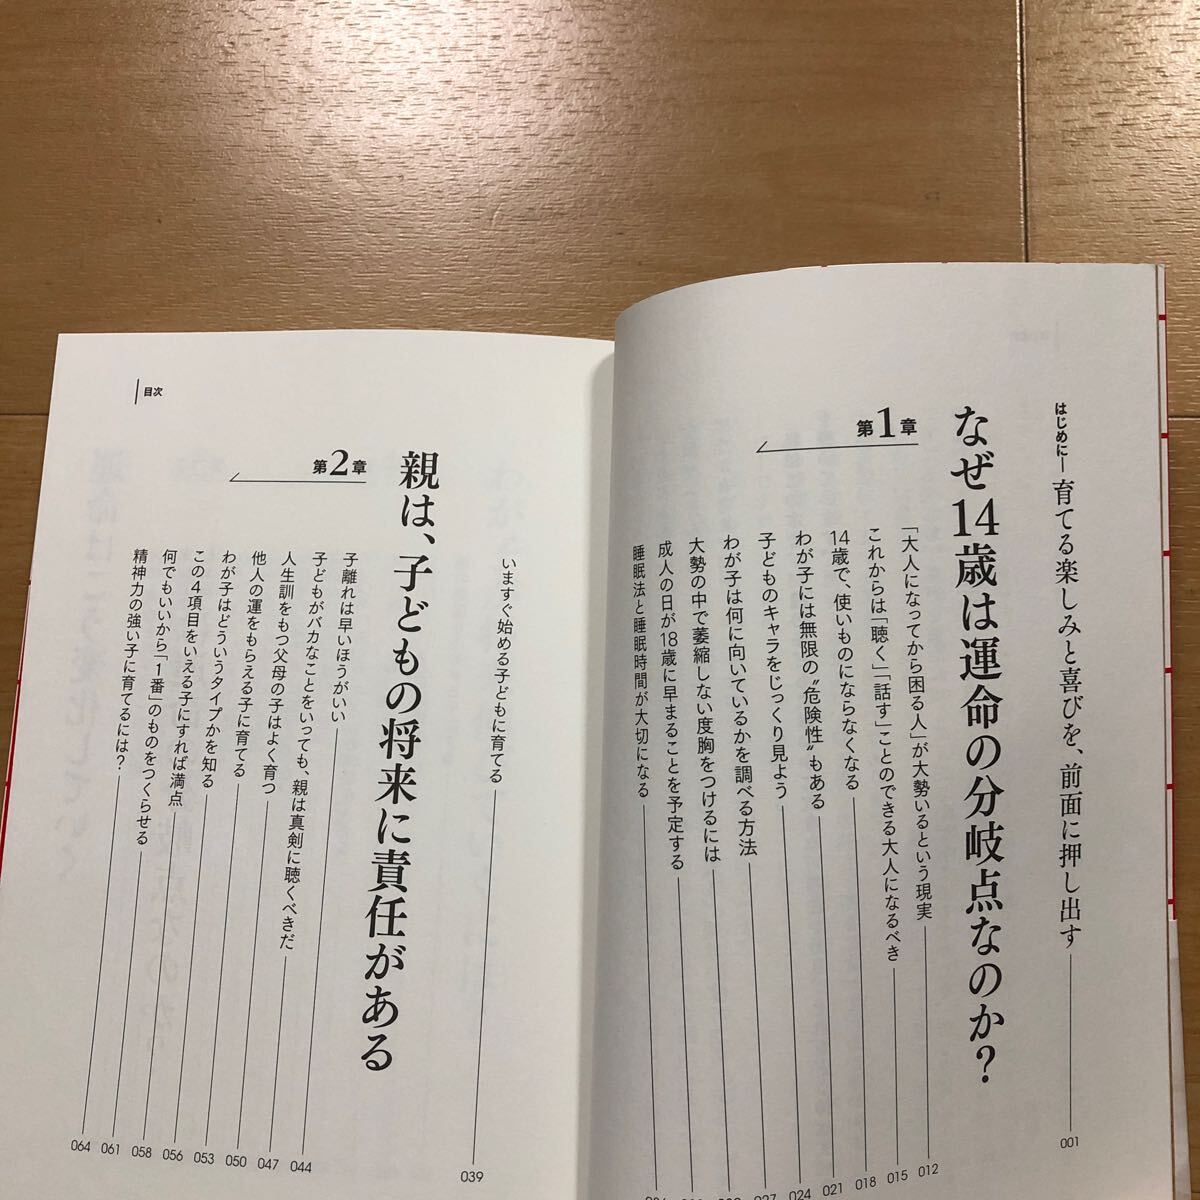 はじめに―育てる楽しみと喜びを、前面に押し出す 001
第1章
なぜ14歳は運命の分岐点なのか？
「大人になってから困る人」が大勢いるという現実 012
これからは「聴く」「話す」ことのできる大人になるべき 015
14歳で、使いものにならなくなる 018
わが子には無限の〝危険性〟もある 021
子どものキャラをじっくり見よう 024
わが子は何に向いているかを調べる方法 027
大勢の中で萎縮しない度胸をつけるには
成人の日が18歳に早まることを予定する
睡眠法と睡眠時間が大切になる
目次
いますぐ始める子どもに育てる 039
第2章
親は、子どもの将来に責任がある
子離れは早いほうがいい 044
子どもがバカなことをいっても、親は真剣に聴くべきだ 047
人生訓をもつ父母の子はよく育つ 050
他人の運をもらえる子に育てる 053
わが子はどういうタイプかを知る 056
この4項目をいえる子にすれば満点 058
何でもいいから「1番」のものをつくらせる 061
精神力の強い子に育てるには？ 064